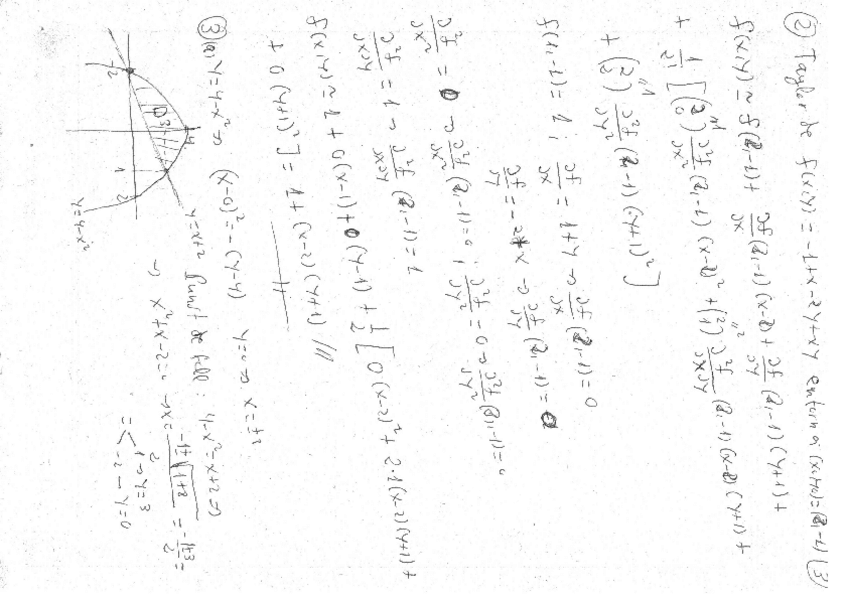 ② Taylor de f(x,y) = -1+x-2y+xy entorn a (x₀,y₀)=(2,-1) ③
f(x,y) ≃ f(2,-1) + ∂f/∂x (2,-1) (x-2) + ∂f/∂y (2,-1) (y+1) +
+ 1/2! [ (2 0) ∂²f/∂x² (2,-1) (x-2)² + (2 1) ∂²f/∂x∂y (2,-1) (x-2) (y+1) +
+ (2 2) ∂²f/∂y² (2,-1) (y+1)² ]
f(2,-1) = 1 ; ∂f/∂x = 1+y → ∂f/∂x (2,-1) = 0
∂f/∂y = -2+x → ∂f/∂y (2,-1) = 0
∂²f/∂x² = 0 → ∂²f/∂x² (2,-1) = 0 ; ∂²f/∂y² = 0 → ∂²f/∂y² (2,-1) = 0
∂²f/∂x∂y = 1 → ∂²f/∂x∂y (2,-1) = 1
f(x,y) ≃ 1 + 0(x-1) + 0(y-1) + 1/2 [ 0(x-2)² + 2·1(x-2)(y+1) +
+ 0(y+1)² ] = 1 + (x-2)(y+1) //
③ (a) y = 4-x² → (x-0)² = -(y-4) y=0 → x=±2
y=x+2
4-x² = x+2 ⇒
⇒ x²+x-2=0 → x = (-1±√(1+8))/2 = (-1±3)/2 =
= < 1 → y=3
-2 → y=0
4
D
-2
1
2
y=4-x²